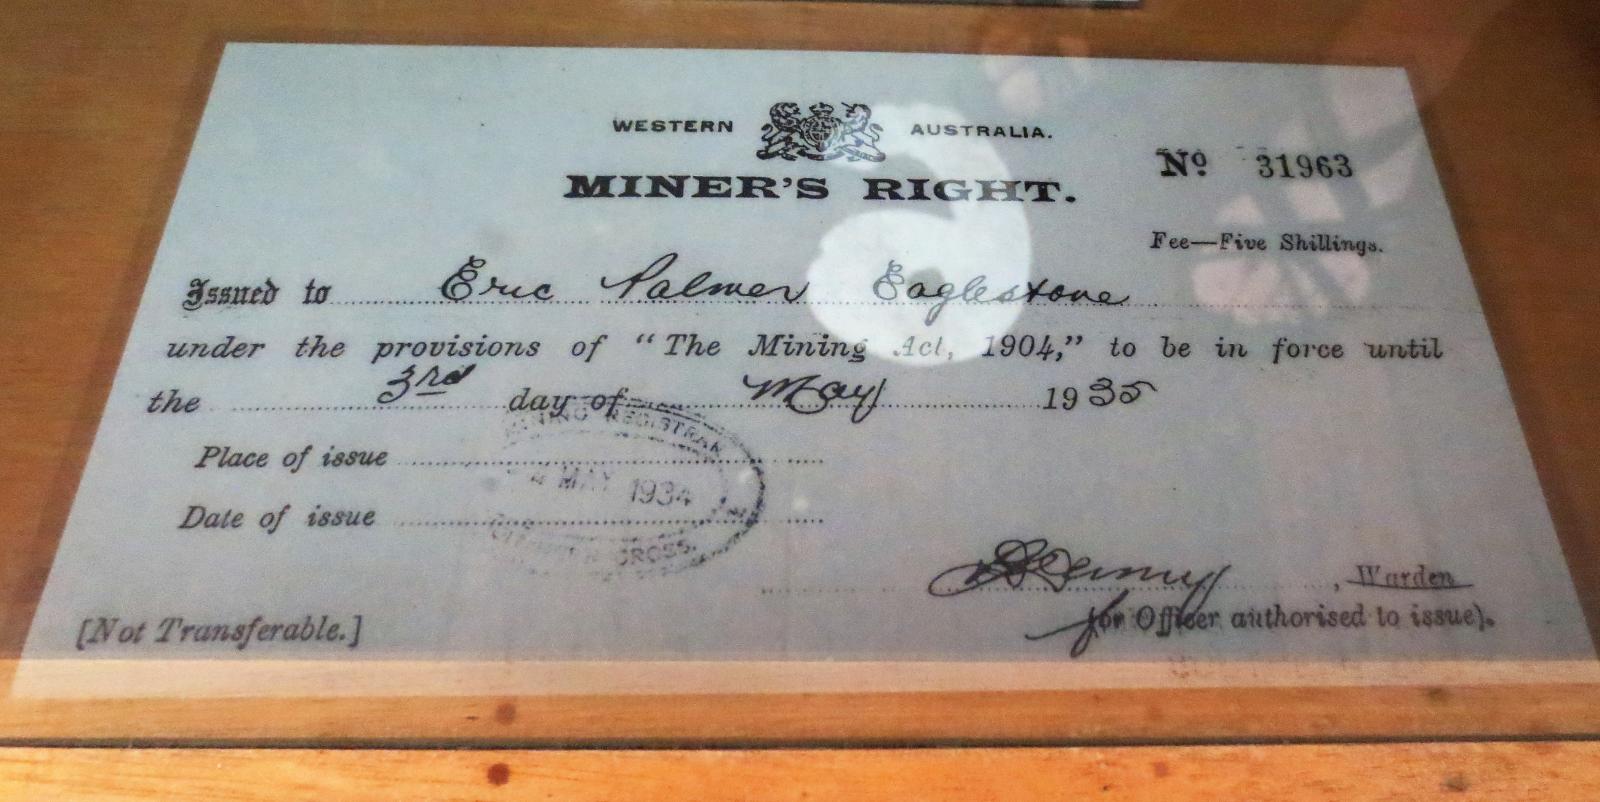 WESTERN AUSTRALIA.
MINER'S RIGHT.
No. 31963
Fee—Five Shillings.
Issued to Eric Palmer Eaglestone
under the provisions of "The Mining Act, 1904," to be in force until
the 3rd day of May 1935
MINING REGISTRAR
Place of issue
4 MAY 1934
Date of issue
CROSS.
Warden
for Officer authorised to issue).
[Not Transferable.]